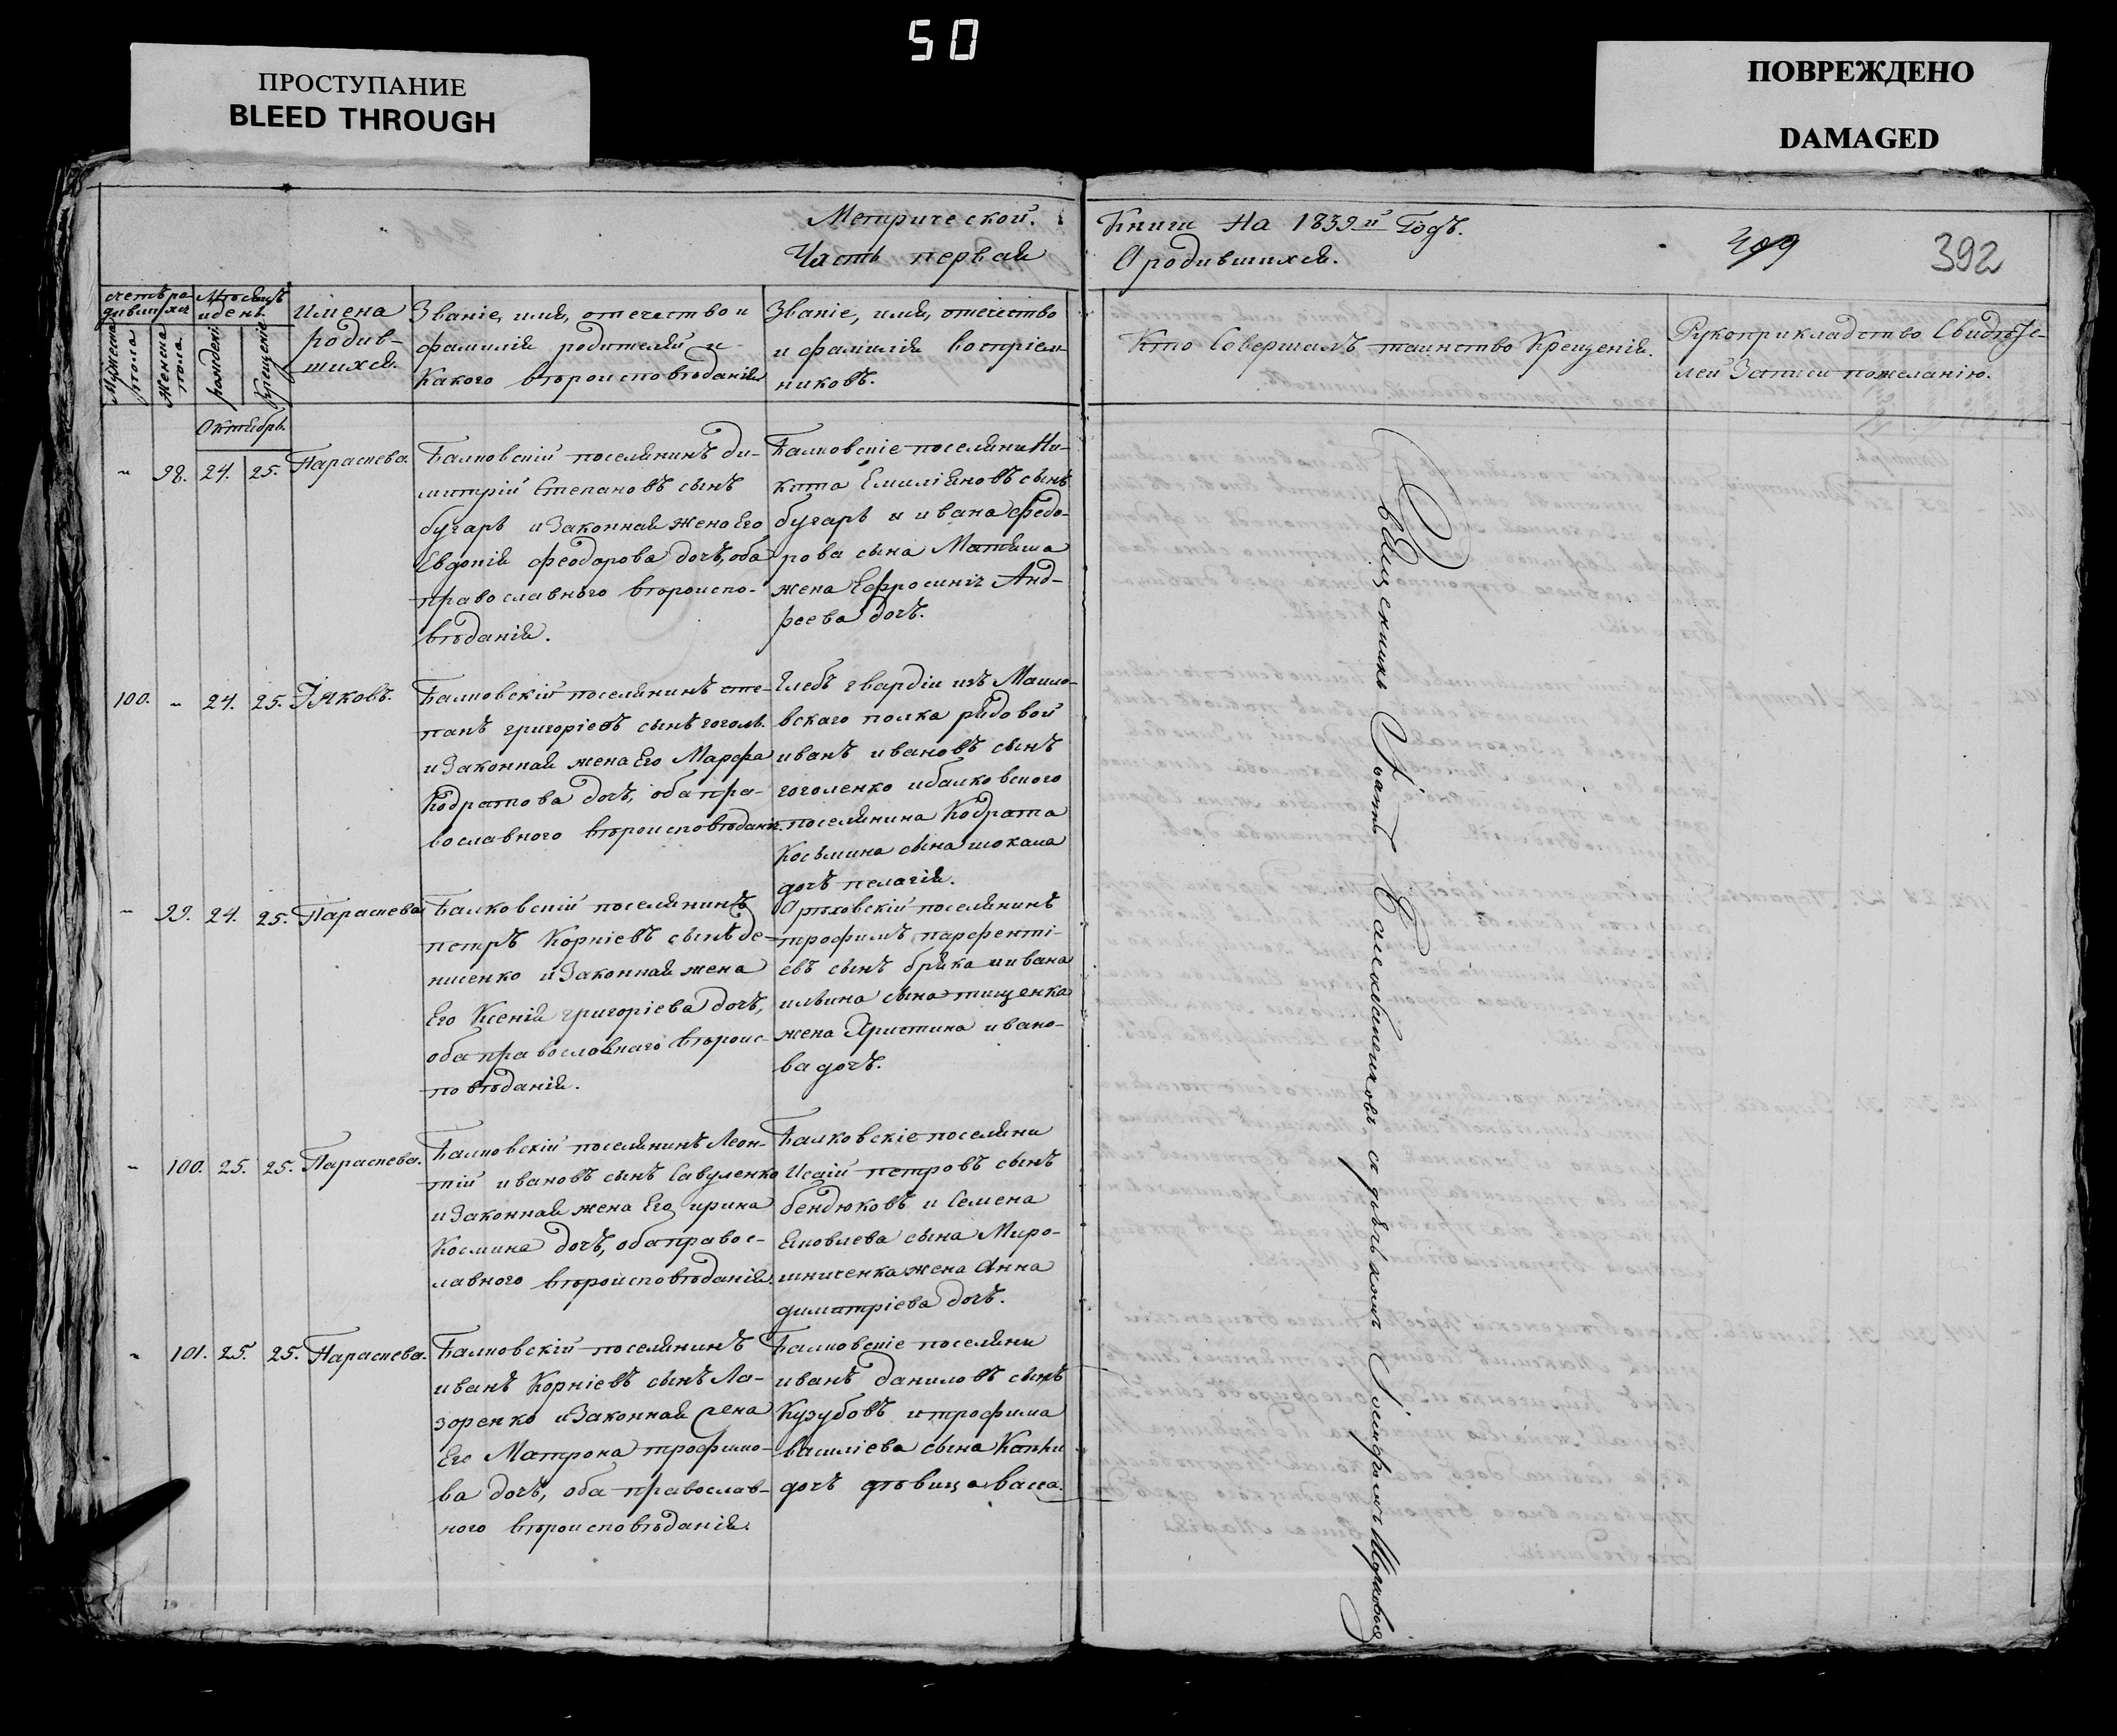 50
ПРОСТУПАНИЕ
BLEED THROUGH
ПОВРЕЖДЕНО
DAMAGED
Метрической.
Часть первая
Книги На 1839й Годъ.
О родившихся.
392
счетъ ро-
дившихся
Мужеска
пола
Женска
пола.
Месяцъ
и день.
рожденія
крещенія
Имена
родив-
шихся.
Званіе, имя, отечество и
фамилія родителей и
Какого вѣроисповѣданія
Званіе, имя, отечество
и фамилія воспріем-
никовъ.
Кто Совершалъ таинство Крещенія.
Рукоприкладство Свидѣте-
лей Записи пожеланію.
Октябрь.
" 98. 24. 25. Параскева.
Балковскій поселянинъ Ди-
митрій Степановъ сынъ
бугаръ и Законная жена Его
Евдокія феодорова дочь, оба
православного вѣроиспо-
вѣданія.
Балковскіе поселяни Ни-
кита Емиліяновъ сынъ
бугаръ и ивана федо-
рова сына Матяша
жена Ефросинія Анд-
реева дочь.
100. " 24. 25. Іяковъ.
Балковскій поселянинъ сте-
панъ григоріевъ сынъ гоголь.
и Законная жена Его Марфа
Кодратова дочь, оба пра-
вославного вѣроисповѣдани.
Глебъ гвардіи измаило-
вскаго полка рядовой
иванъ ивановъ сынъ
гоголенко и балковского
поселянина Кодрата
Косьмина сына шокала
дочь пелагія.
" 99. 24. 25. Параскева
Балковскій поселянинъ
петръ Корніевъ сынъ де-
нисенко и Законная жена
Его Ксенія григоріева дочь,
оба православнаго вѣроис-
повѣданія.
Орѣховскій поселянинъ
трофимъ парфенті-
евъ сынъ бряка и ивана
ильина сына тищенка
жена Христина ивано-
ва дочь.
" 100. 25. 25. Параскева.
Балковскій поселянинъ Леон-
тій ивановъ сынъ Савуленко
и Законная жена Его ирина
Космина дочь, оба правос-
лавного вѣроисповѣданія.
Балковскіе поселяни
Исаій петровъ сынъ
бендюковъ и Семена
Яковлева сына Миро-
шниченка жена Анна
димитріева дочь.
" 101. 25. 25. Параскева.
Балковскій поселянинъ
иванъ Корніевъ сынъ Ла-
зоренко и Законная жена
Его Матрона трофимо-
ва дочь, оба православ-
ного вѣроисповѣданія.
Балковскіе поселяни
иванъ даниловъ сынъ
Кузубовъ и трофима
василіева сына
дочь дѣвица васса.
Священникъ